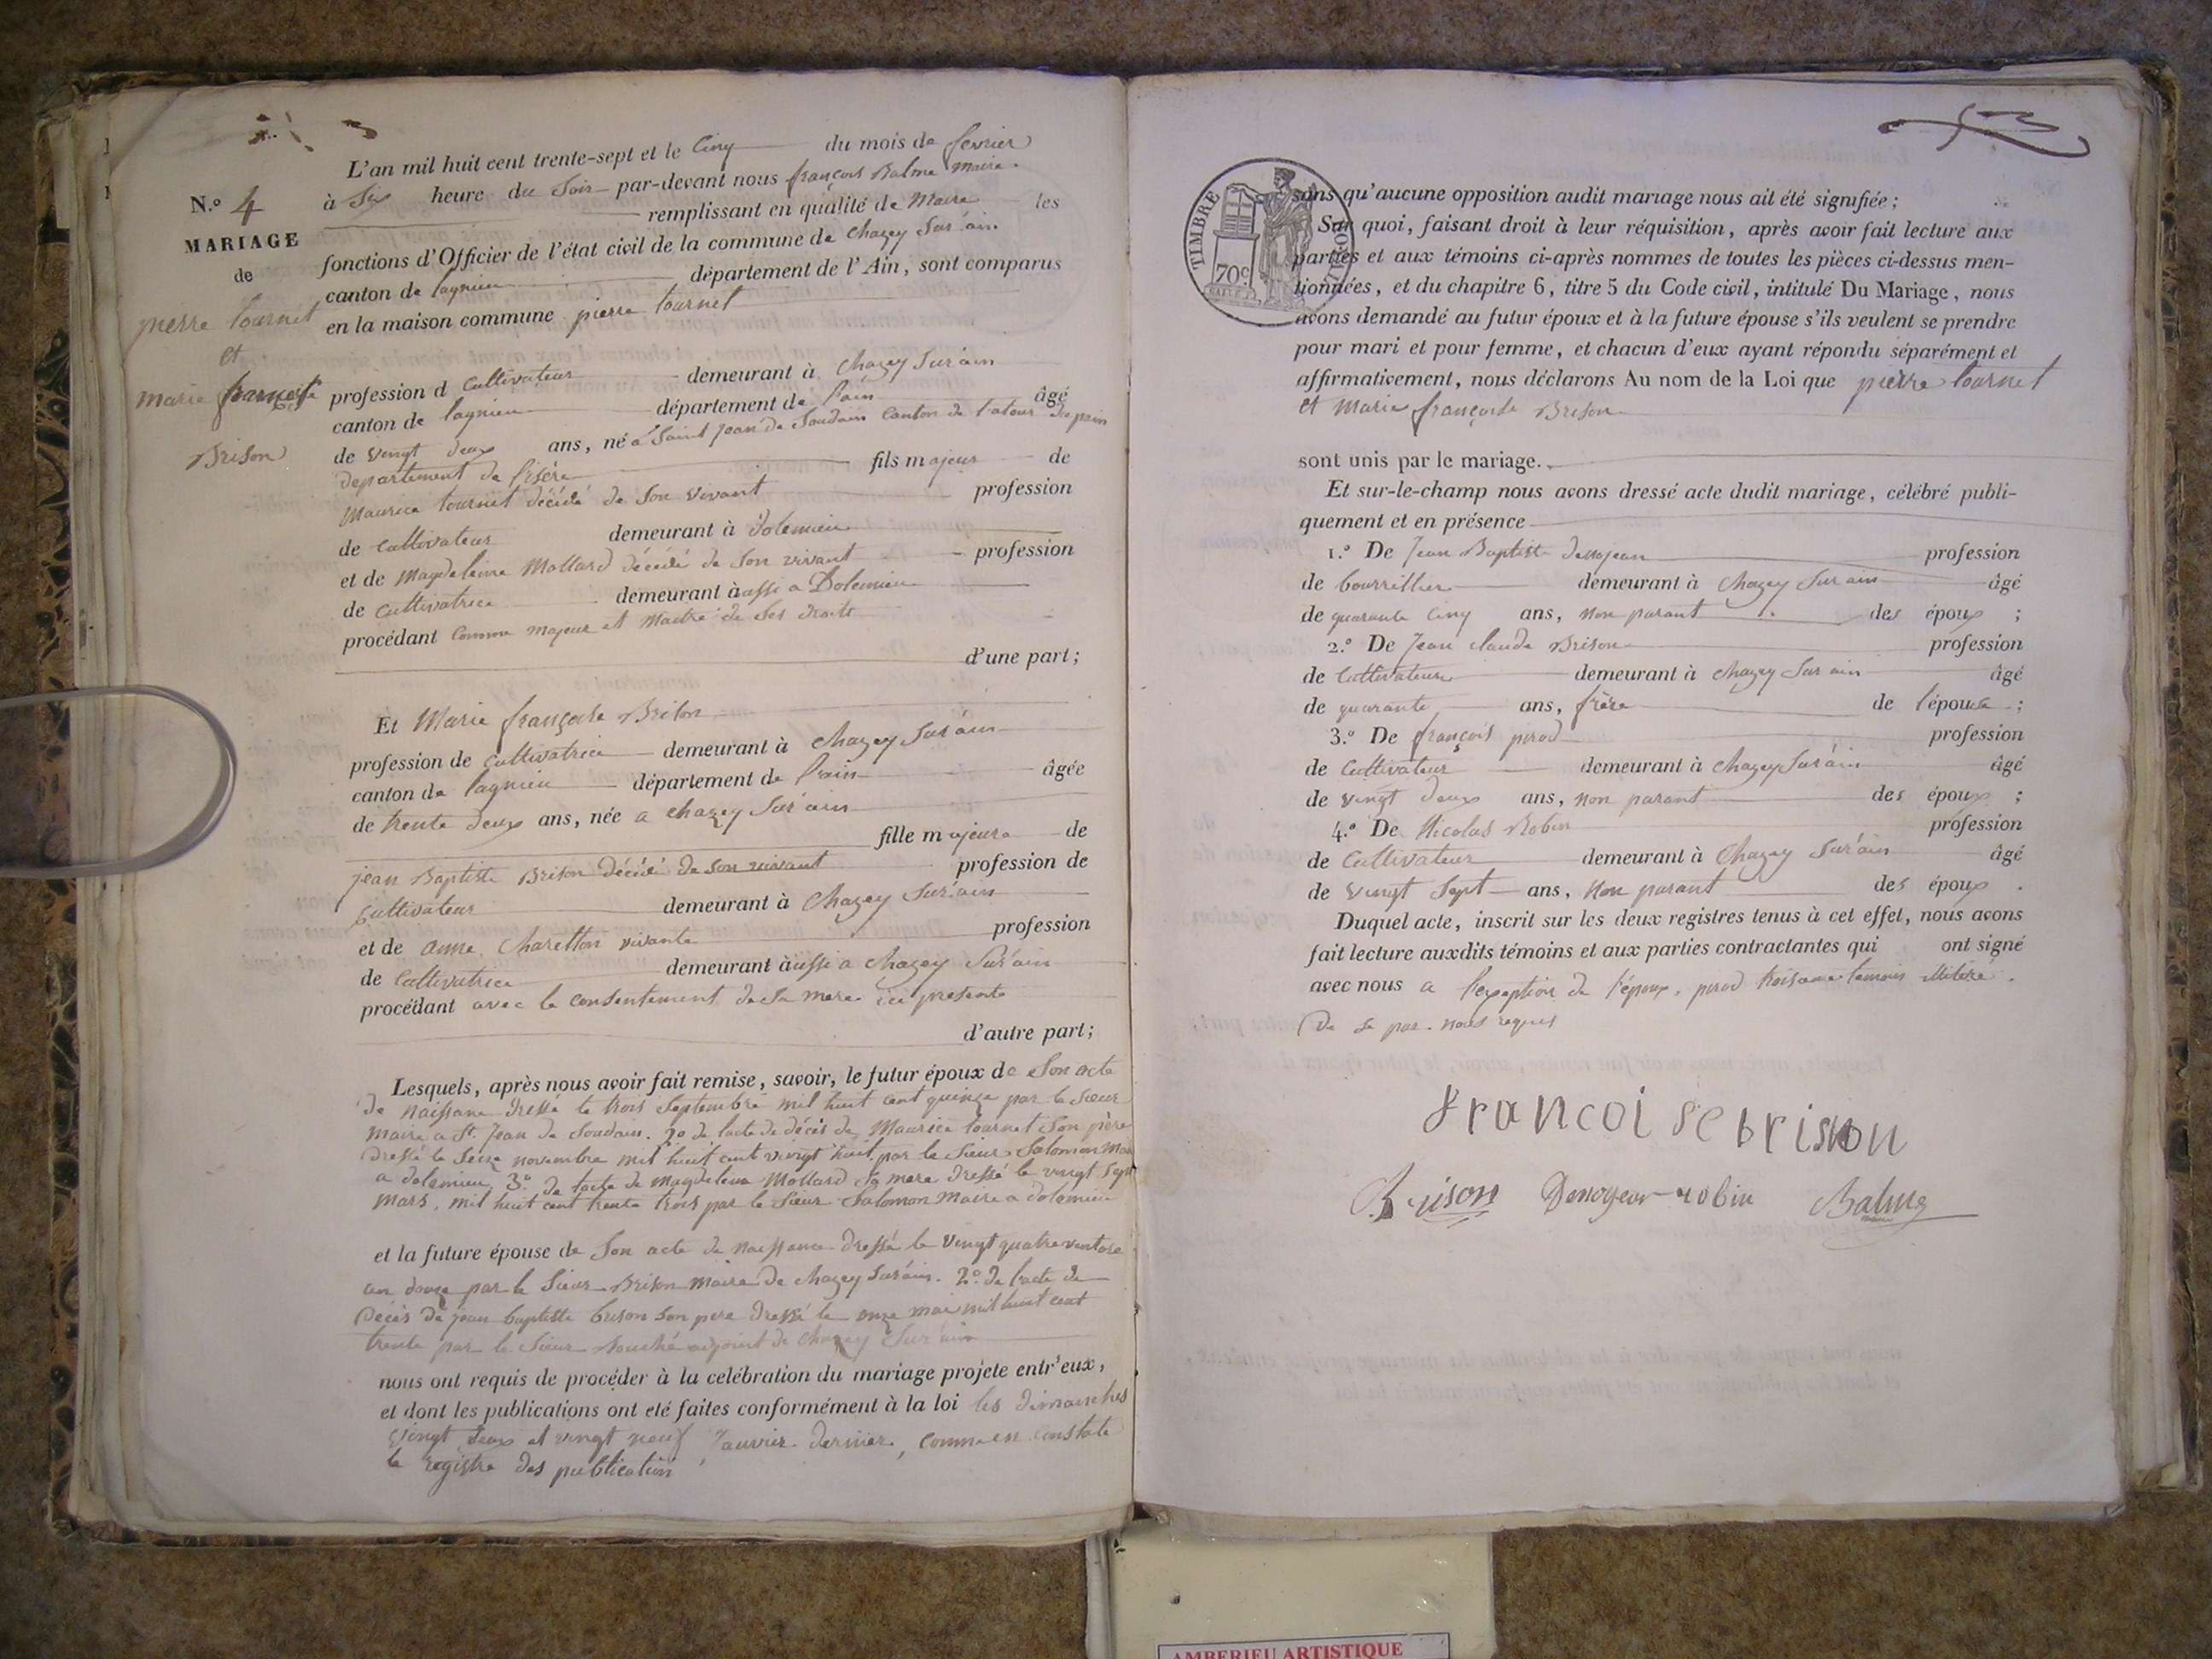 L'an mil huit cent trente-sept et le Cinq du mois de fevrier
à Six heure du Soir par-devant nous françois Balme Maire.
remplissant en qualité de Maire les
fonctions d'Officier de l'état civil de la commune de Chazey Sur ain.
canton de lagnieu département de l'Ain, sont comparus
en la maison commune pierre tournet
N.o 4
MARIAGE
de
pierre tournet
et
marie françoise
Brison
profession d Cultivateur demeurant à Chazey Sur ain
canton de lagnieu département de l'ain âgé
de vingt deux ans, né à Saint Jean de Soudain Canton de latour du pin
departement de l'isère fils majeur de
Maurice tournet décédé de Son vivant profession
de Cultivateur demeurant à Dolemieu
et de Magdeleine Mollard décédé de Son vivant profession
de Cultivatrice demeurant à aussi a Dolemieu
procédant Comme majeur et Maitre de Ses droits
d'une part;
Et Marie françoise Brison
profession de Cultivatrice demeurant à Chazey Sur ain
canton de lagnieu département de l'ain âgée
de trente deux ans, née a chazey Sur ain
fille majeure de
jean Baptiste Brison décédé de son vivant profession de
Cultivateur demeurant à Chazey Sur ain
et de anne Charetton vivante profession
de Cultivatrice demeurant à aussi a Chazey Sur ain
procédant avec le Consentement de Sa mere ici presente
d'autre part;
Lesquels, après nous avoir fait remise, savoir, le futur époux de Son acte
de naissance dressé le trois Septembre mil huit cent quinze par le Sieur
maire a St. Jean de Soudain. 2o de l'acte de décès de Maurice tournet Son père
dressé le Seize novembre mil huit cent vingt huit par le Sieur Salomon
a dolemieu 3o de l'acte de Magdeleine Mollard Sa mere dressé le vingt Sept
mars, mil huit cent trente trois par le Sieur Salomon Maire a dolemieu
et la future épouse de Son acte de naissance dressé le vingt quatre ventose
an douze par le Sieur Brison maire de Chazey Sur ain. 2o de l'acte de
Décès de jean baptiste brison Son pere dressé le onze mai mil huit cent
trente par le Sieur adjoint de Chazey Sur ain
nous ont requis de procéder à la celébration du mariage projete entr'eux,
et dont les publications ont eté faites conformément à la loi les dimanches
vingt deux et vingt neuf Janvier dernier, comme en Constate
le registre des publication
TIMBRE
70c
sans qu'aucune opposition audit mariage nous ait été signifiée;
Sur quoi, faisant droit à leur réquisition, après avoir fait lecture aux
parties et aux témoins ci-après nommes de toutes les pièces ci-dessus men-
tionnées, et du chapitre 6, titre 5 du Code civil, intitulé Du Mariage, nous
avons demandé au futur époux et à la future épouse s'ils veulent se prendre
pour mari et pour femme, et chacun d'eux ayant répondu séparément et
affirmativement, nous déclarons Au nom de la Loi que pierre tournet
et Marie françoise Brison
sont unis par le mariage.
Et sur-le-champ nous avons dressé acte dudit mariage, célébré publi-
quement et en présence
1.o De Jean Baptiste profession
de bourrellier demeurant à Chazey Sur ain âgé
de quarante Cinq ans, non parant des époux ;
2.o De Jean claude Brison profession
de Cultivateur demeurant à Chazey Sur ain âgé
de quarante ans, frère de l'épouse ;
3.o De françois pirod profession
de Cultivateur demeurant à Chazey Sur ain âgé
de vingt deux ans, non parant des époux ;
4.o De Nicolas Robin profession
de Cultivateur demeurant à Chazey Sur ain âgé
de vingt Sept ans, Non parant des époux .
Duquel acte, inscrit sur les deux registres tenus à cet effet, nous avons
fait lecture auxdits témoins et aux parties contractantes qui ont signé
avec nous a l'exeption de l'époux, pirod troisieme temoin illitéré.
De ce par nous requis
francoise brison
Brison Denoyer robin Balme
AMBERIEU ARTISTIQUE